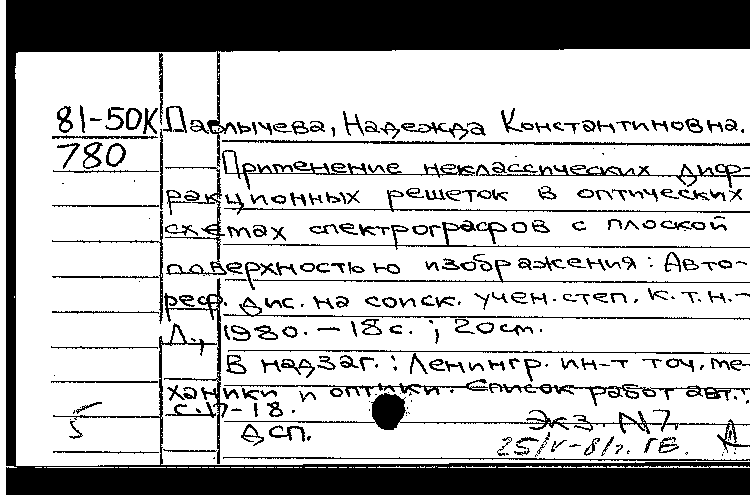 81-50К Павлычева, Надежда Константиновна.
780
Применение неклассических диф-
ракционных решеток в оптических
схемах спектрографов с плоской
поверхностью изображения: Авто-
реф. дис. на соиск. учен. степ. к.т.н.-
Л., 1980. – 18 с. ; 20 см.
В надзаг.: Ленингр. ин-т точ. ме-
ханики и оптики. Список работ авт.:
с. 17-18.
5
ДСП.
Экз. N7.
25/V-81г.